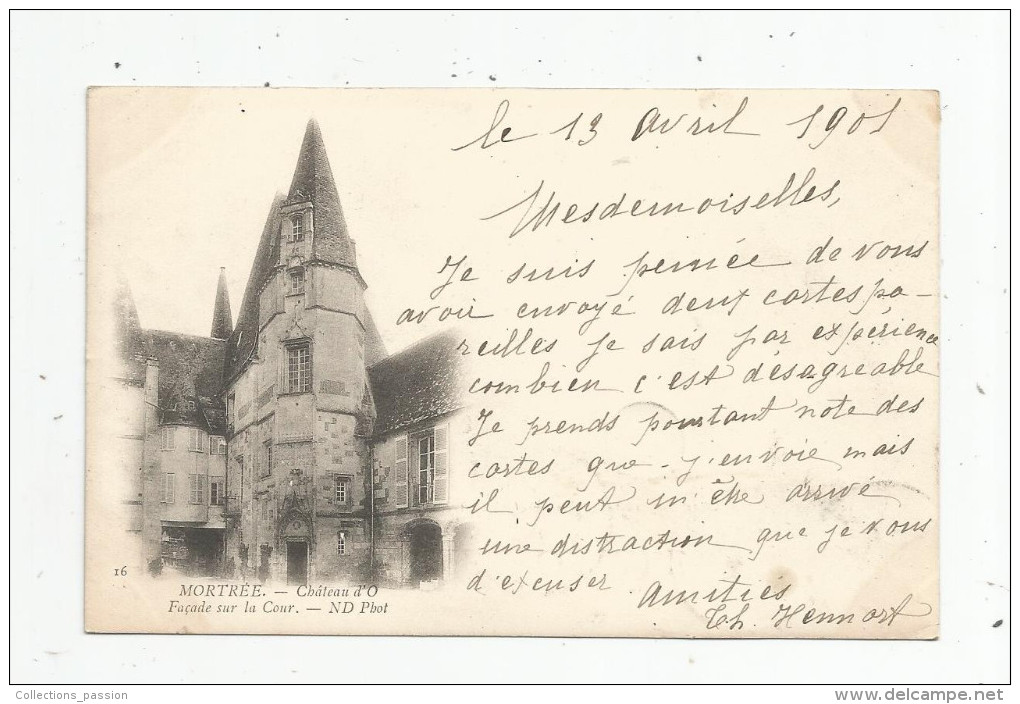 le 13 avril 1901
Mesdemoiselles,
Je suis peinée de vous
avoir envoyé deux cartes pa-
reilles je sais par expérience
combien c'est désagréable
Je prends pourtant note des
cartes que j'envoie mais
il peut m'être arrivé
une distraction que je vous
d'excuser
Amitiés
Th. Hennort
16
MORTRÉE. — Château d'O
Façade sur la Cour. — ND Phot
Collections_passion
http://www.delcampe.net